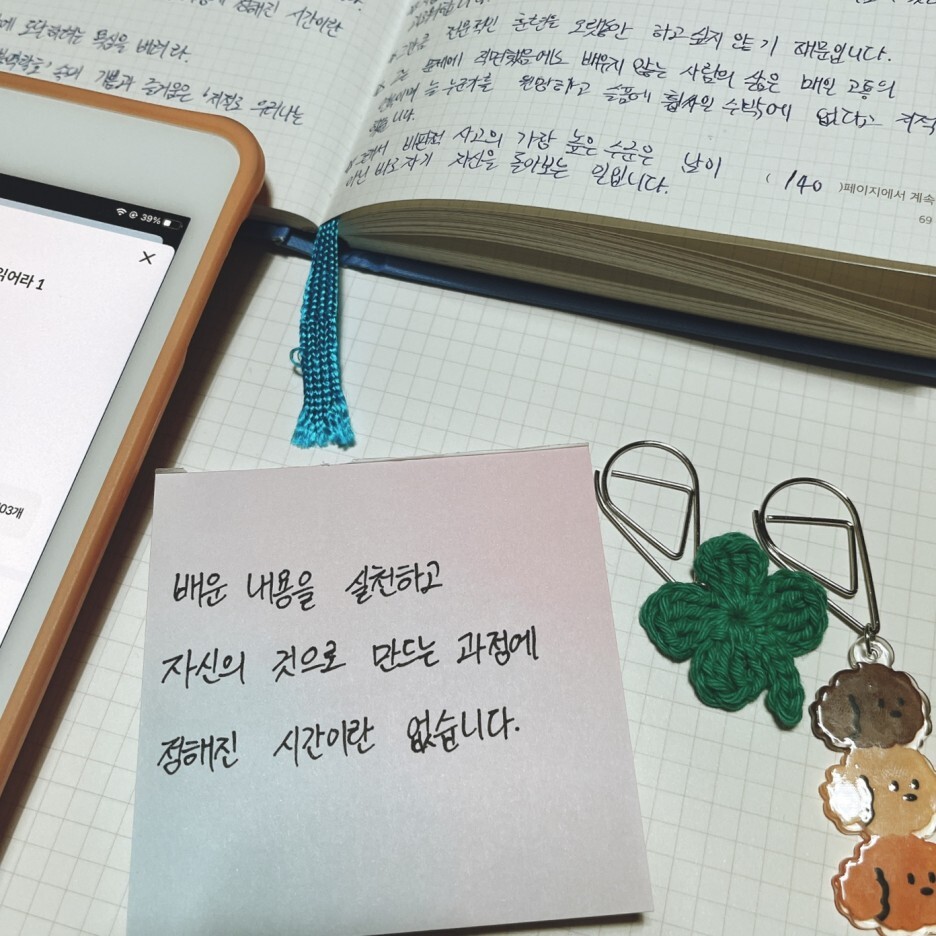 정해진 시간이란
에 도착하려는 욕심을 버려라.
기쁨과 즐거움은 '저절로 우러나는
전문적인 훈련을 오랫동안 하고 싶지 않기 때문입니다.
문제에 직면했음에도 배우지 않는 사람의 삶은 매일 고통의
늘 누군가를 원망하고 슬픔에 휩싸일 수밖에 없다고 지적
합니다.
그래서 비판적 사고의 가장 높은 수준은 남이
아닌 바로 자기 자신을 돌아보는 일입니다.
( 140 )페이지에서 계속
69
39%
읽어라 1
03개
배운 내용을 실천하고
자신의 것으로 만드는 과정에
정해진 시간이란 없습니다.